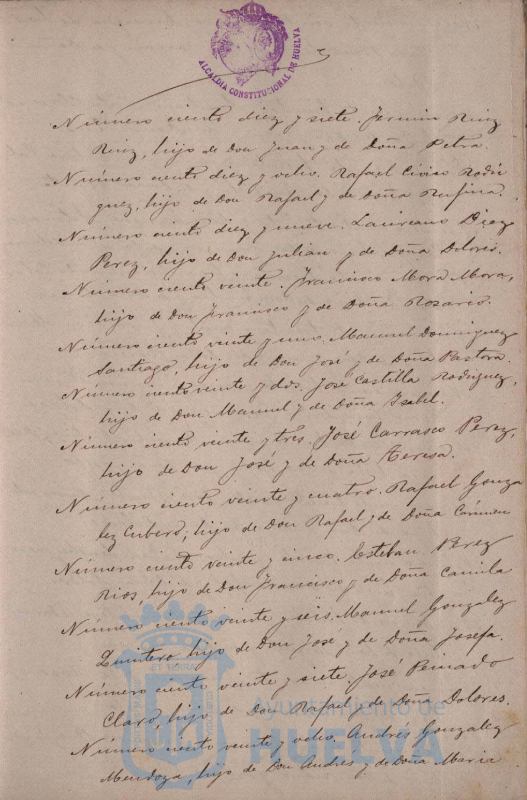 ALCALDIA CONSTITUCIONAL DE HUELVA
Número ciento diez y siete. Fermin Ruiz
Ruiz, hijo de Don Juan y de Doña Petra.
Número ciento diez y ocho. Rafael Rodri
guez, hijo de Don Rafael y de Doña Rufina.
Número ciento diez y nueve. Laureano Diez
Perez, hijo de Don Julian y de Doña Dolores.
Número ciento veinte. Francisco Mora Mora,
hijo de Don Francisco y de Doña Rozario.
Número ciento veinte y uno. Manuel Dominguez
Santiago, hijo de Don José y de Doña Pastora.
Número ciento veinte y dos. José Castilla Rodriguez,
hijo de Don Manuel y de Doña Isabel.
Número ciento veinte y tres. José Carrasco Perez,
hijo de Don José y de Doña Teresa.
Número ciento veinte y cuatro. Rafael Gonza
lez Cubero, hijo de Don Rafael y de Doña Cármen
Número ciento veinte y cinco. Esteban Perez
Rios, hijo de Don Francisco y de Doña Camila
Número ciento veinte y seis. Manuel Gonzalez
Quintero, hijo de Don José y de Doña Josefa.
Número ciento veinte y siete. José Peinado
Claro, hijo de Don Rafael y de Doña Dolores.
Número ciento veinte y ocho. Andrés Gonzalez
Mendoza, hijo de Don Andres y de Doña Maria
Ayuntamiento de
HUELVA